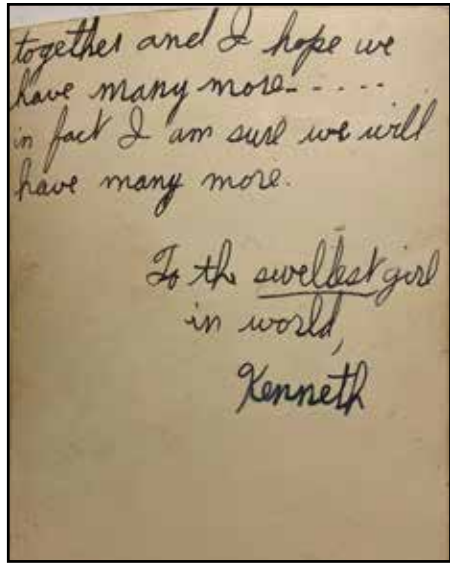 together and I hope we
have many more - - - - -
in fact I am sure we will
have many more.
To th swellest girl
in world,
Kenneth